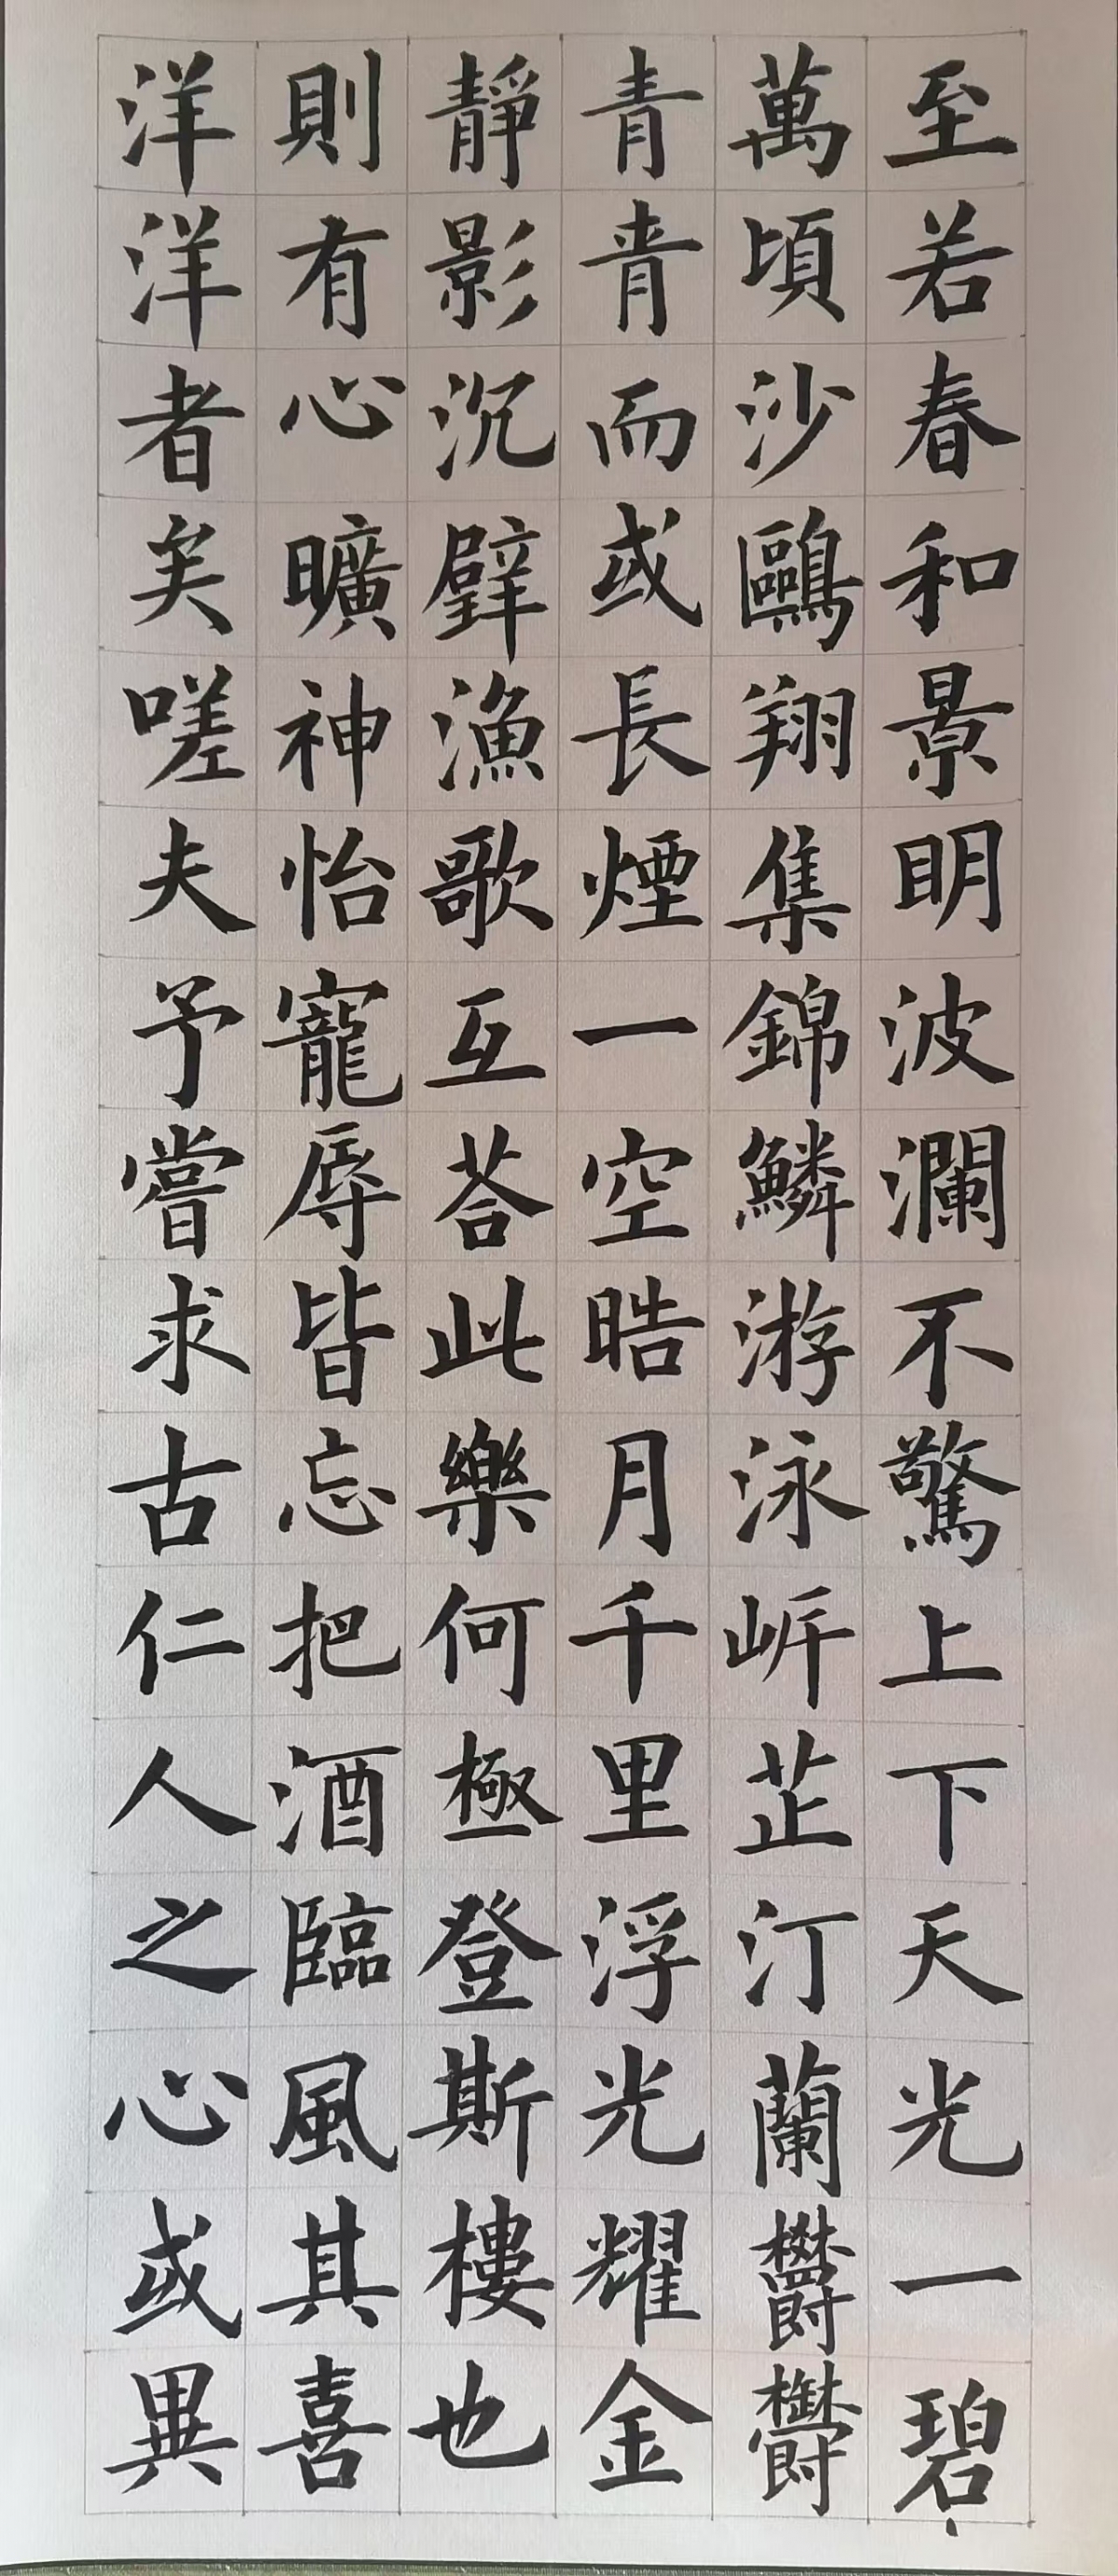 至若春和景明波瀾不驚上下天光一碧
萬頃沙鷗翔集錦鱗游泳岍芷汀蘭欝欝
青青而或長煙一空皓月千里浮光耀金
靜影沉璧漁歌互荅此樂何極登斯樓也
則有心曠神怡寵辱皆忘把酒臨風其喜
洋洋者矣嗟夫予嘗求古仁人之心或異